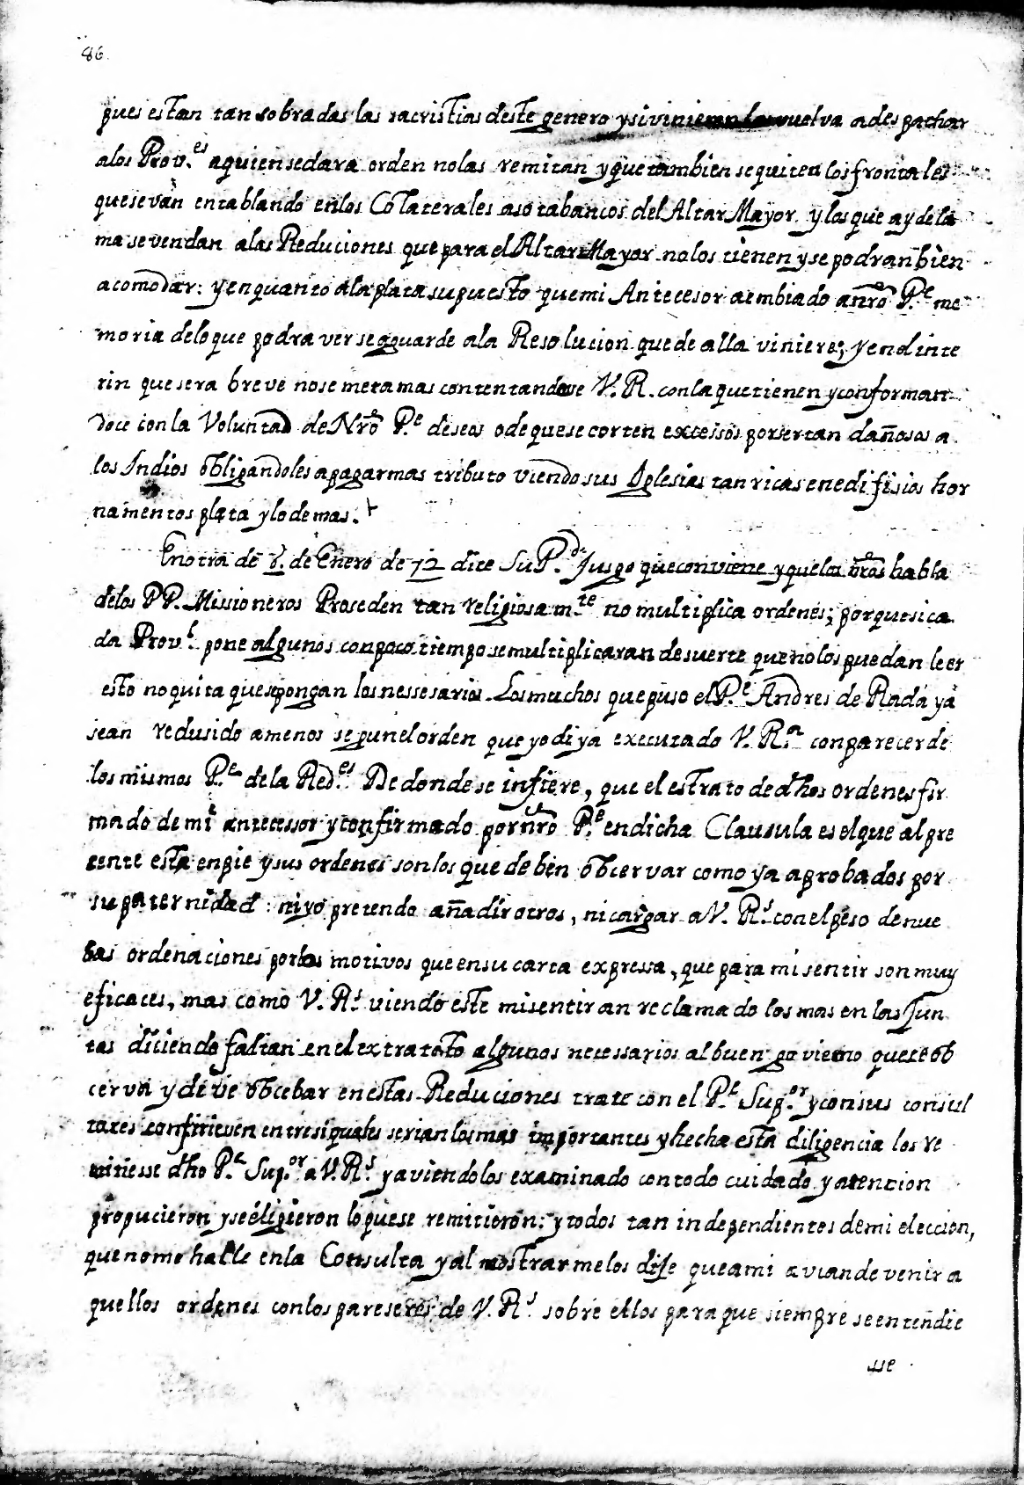 86.
pues estan tan sobradas las sacristias deste genero y si vinieren las vuelva a despachar
a los Prov.es a quien se dara orden no las remitan y que tambien se quiten los frontales
que se van entablando en los Colaterales aso tabancos del Altar Mayor y los que ay de la
ma se vendan a las Reduciones que para el Altar Mayor no los tienen y se podran bien
acomodar: y en quanto a la plata supuesto que mi Antecesor a embiado a nro P.e me
moria de lo que podra ver se aguarde a la Resolucion que de alla viniere, y en el inte
rin que sera breve no se meta mas contentandose V. R. con la que tienen y conforman
doce con la Voluntad de Nro P.e deseos o de que se corten excessos por ser tan dañosos a
los Indios obligandoles a pagar mas tributo viendo sus Iglesias tan ricas en edifisios hor
namentos plata y lo demas. +
En otra de 8. de Enero de 72 dice Su P.d Jusgo que conviene y que los otros habla
de los PP. Missioneros Proseden tan religiosam.te no multiplica ordenes; porque si ca
da Prov.l pone algunos con poco tiempo se multiplicaran de suerte que no los puedan leer
esto no quita que se pongan los nessesarios. Los muchos que puso el P.e Andres de Rada ya
sean redusido a menos según el orden que yo di ya executado V. R.a con parecer de
los mismos P.es de la Red.es De donde se infiere, que el estrato de dhos ordenes fir
mado de mi antecessor y confirmado por nro P.e en dicha Clausula es el que al pre
cente esta en pie y sus ordenes son los que deben obcervar como ya aprobados por
su paternidad: ni yo pretendo añadir otros, ni cargar a V. R.s con el peso de nue
bas ordenaciones por los motivos que en su carta expressa, que para mi sentir son muy
eficaces, mas como V. R.s viendo este mi sentir an reclamado los mas en las Jun
tas diciendo faltan en el extratato algunos necessarios al buen govierno que se ob
cerva y deve obcebar en estas Reduciones trate con el P.e Sup.or y con sus consul
tores confiriecen entre si quales serian los mas importantes y hecha esta diligencia los re
mitiesse dho P.e Sup.or a V. R.s y aviendolos examinado con todo cuidado y atencion
propucieron y se éligieron lo que se remitieron; y todos tan independientes de mi eleccion,
que no me halle en la Consulta y al mostrarmelos dije que a mi avian de venir a
quellos ordenes con los pareseres de V. R.s sobre ellos para que siempre se entendie
se